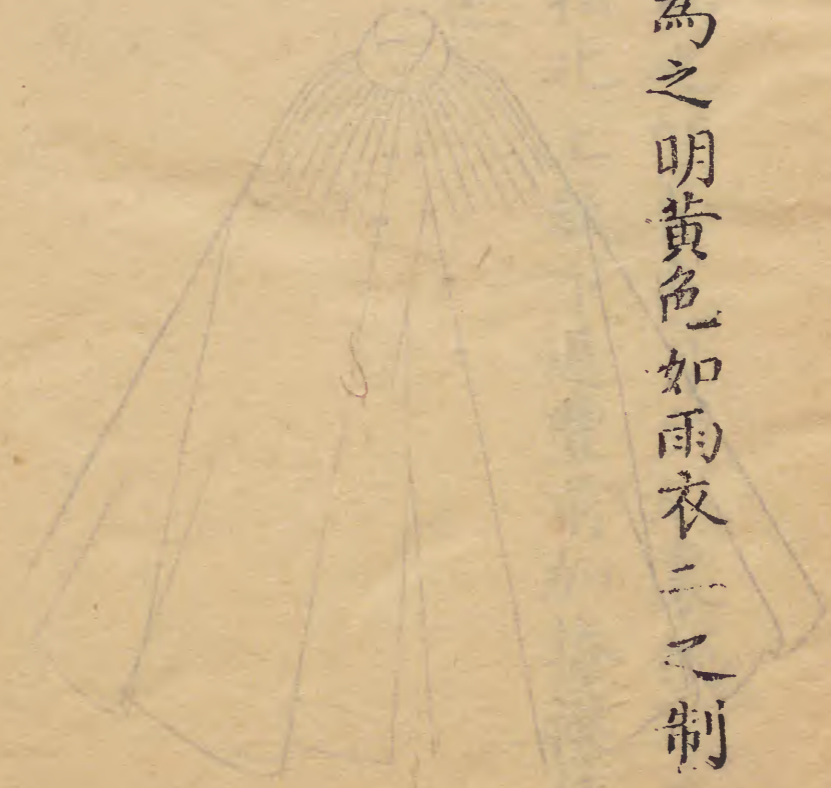 為之明黃色如雨衣二之制